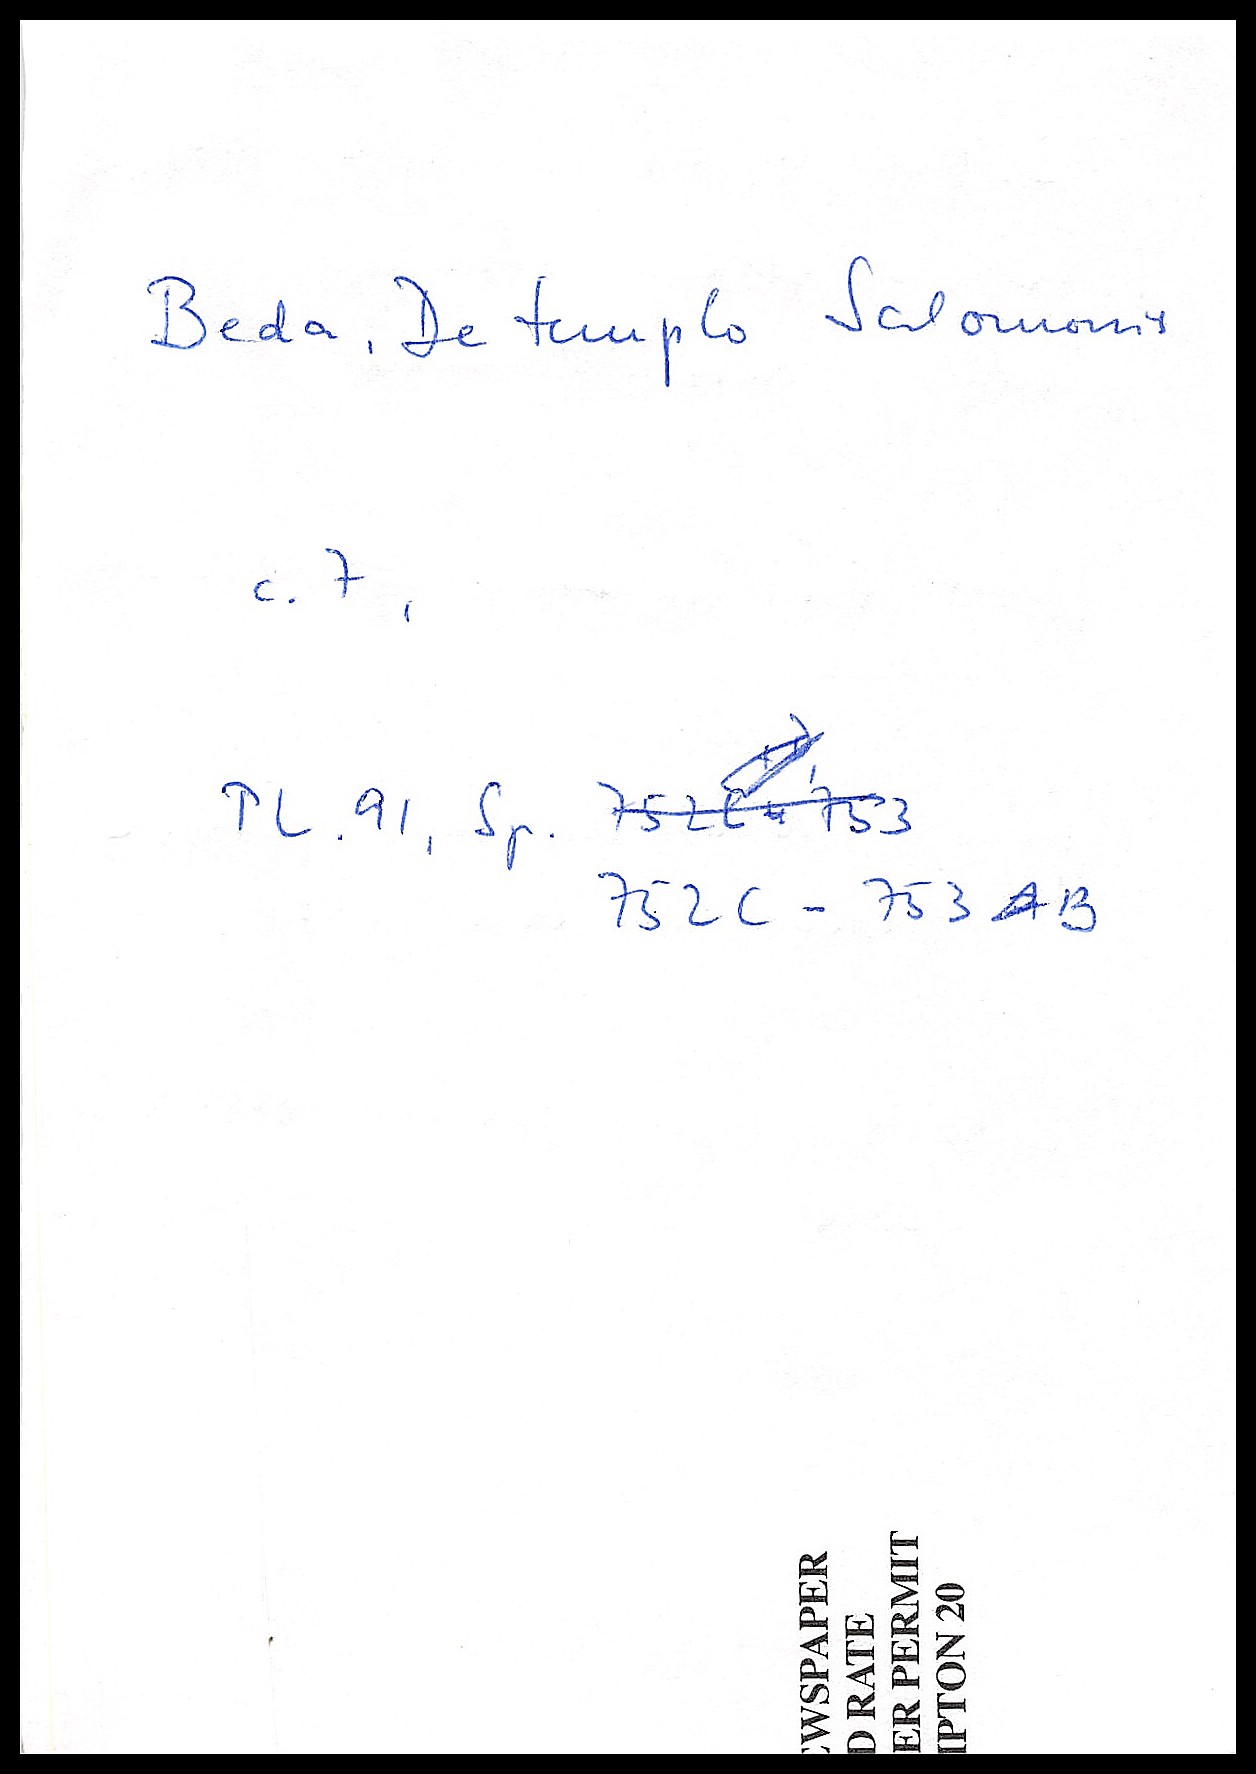 Beda, De templo Salomonis
c. 7,
PL. 91, Sp. 752C - 753
752C - 753 AB
EWSPAPER
D RATE
ER PERMIT
IPTON 20